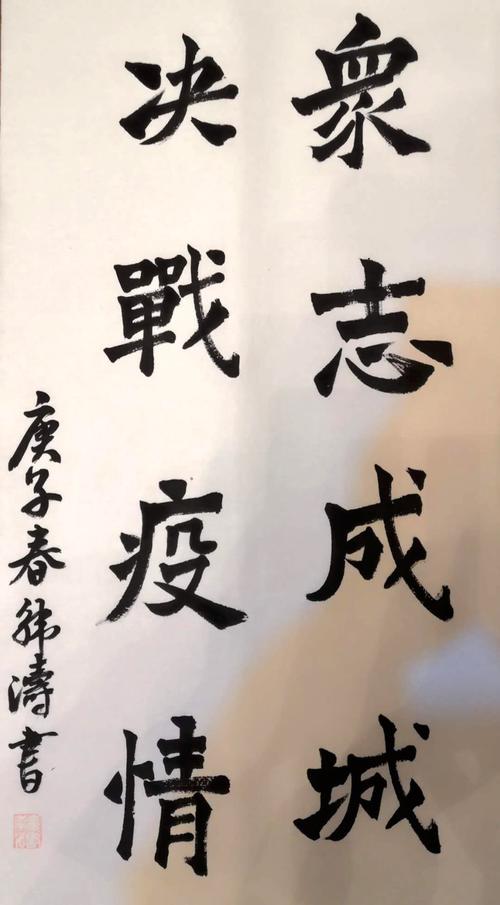 衆志成城
决戰疫情
庚子春 濤書